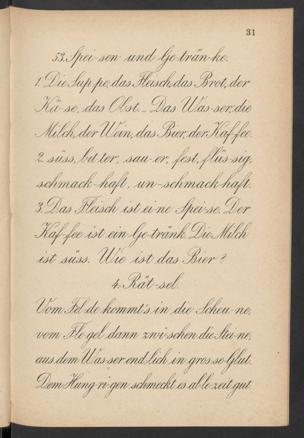 31
53. Spei-sen und Ge-trän-ke.
1. Die Sup-pe, das Fleisch, das Brot, der
Kä-se, das Obst. – Das Was-ser, die
Milch, der Wein, das Bier, der Kaf-fee.
2. süss, bit-ter, sau-er, fest, flüs-sig,
schmack-haft, un-schmack-haft.
3. Das Fleisch ist ei-ne Spei-se. Der
Kaf-fee ist ein Ge-tränk. Die Milch
ist süss. Wie ist das Bier?
4. Rät-sel.
Vom Fel-de kommt's in die Scheu-ne,
vom Fle-gel dann zwi-schen die Stei-ne,
aus dem Was-ser end-lich in gros-se Glut.
Dem Hung-ri-gen schmeckt es al-le-zeit gut